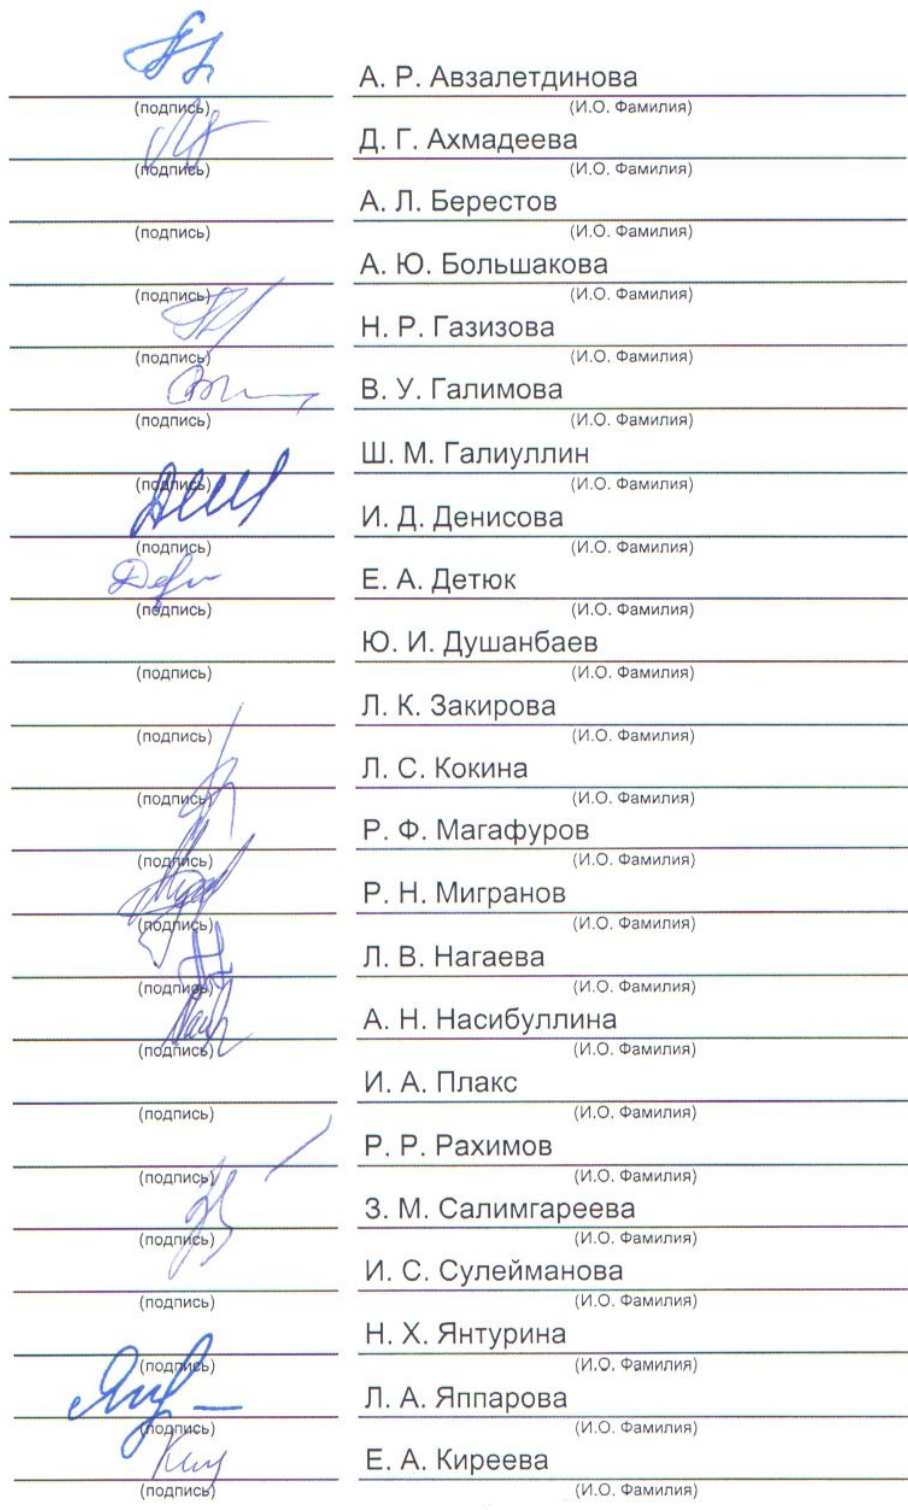 А. Р. Авзалетдинова
(подпись) (И.О. Фамилия)
Д. Г. Ахмадеева
(подпись) (И.О. Фамилия)
А. Л. Берестов
(подпись) (И.О. Фамилия)
А. Ю. Большакова
(подпись) (И.О. Фамилия)
Н. Р. Газизова
(подпись) (И.О. Фамилия)
В. У. Галимова
(подпись) (И.О. Фамилия)
Ш. М. Галиуллин
(подпись) (И.О. Фамилия)
И. Д. Денисова
(подпись) (И.О. Фамилия)
Е. А. Детюк
(подпись) (И.О. Фамилия)
Ю. И. Душанбаев
(подпись) (И.О. Фамилия)
Л. К. Закирова
(подпись) (И.О. Фамилия)
Л. С. Кокина
(подпись) (И.О. Фамилия)
Р. Ф. Магафуров
(подпись) (И.О. Фамилия)
Р. Н. Мигранов
(подпись) (И.О. Фамилия)
Л. В. Нагаева
(подпись) (И.О. Фамилия)
А. Н. Насибуллина
(подпись) (И.О. Фамилия)
И. А. Плакс
(подпись) (И.О. Фамилия)
Р. Р. Рахимов
(подпись) (И.О. Фамилия)
З. М. Салимгареева
(подпись) (И.О. Фамилия)
И. С. Сулейманова
(подпись) (И.О. Фамилия)
Н. Х. Янтурина
(подпись) (И.О. Фамилия)
Л. А. Яппарова
(подпись) (И.О. Фамилия)
Е. А. Киреева
(подпись) (И.О. Фамилия)